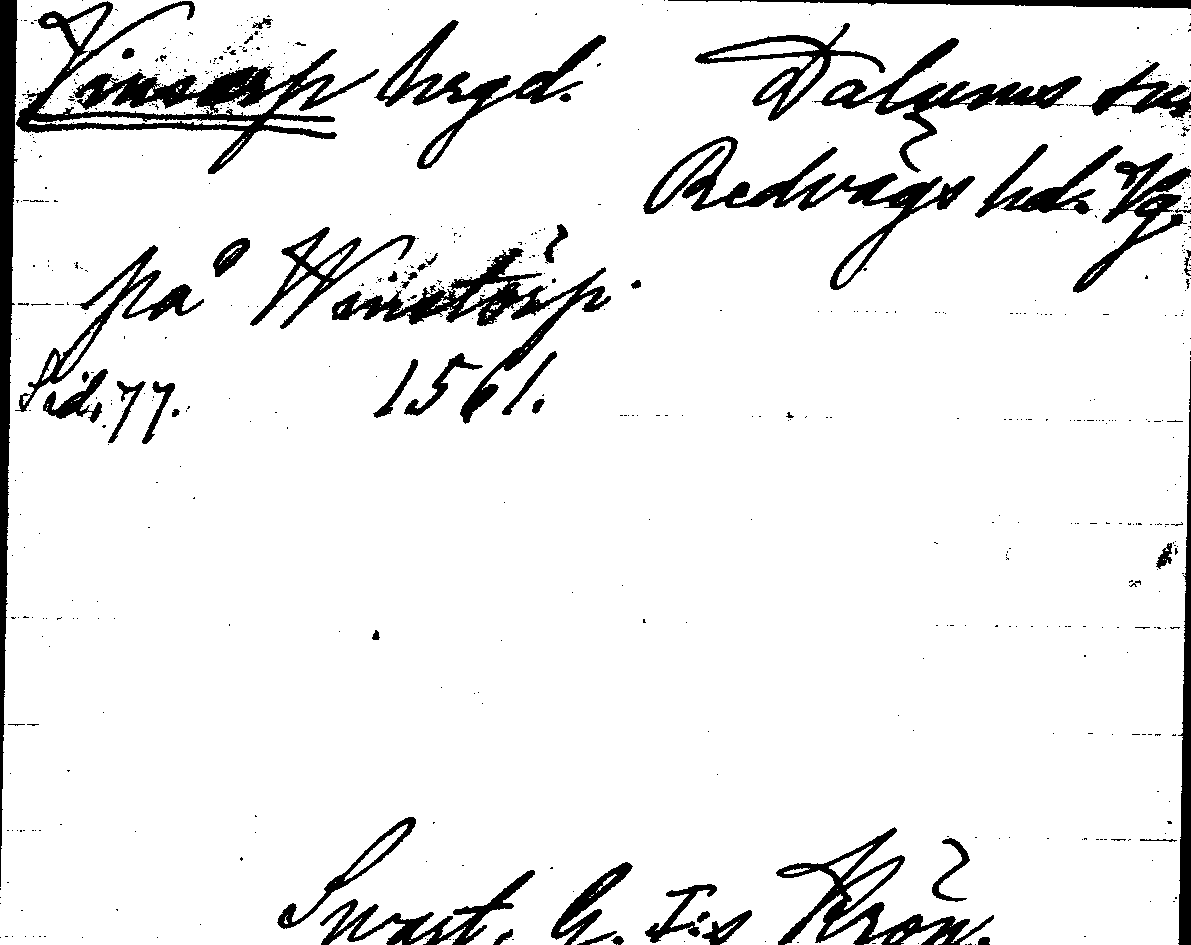 Vinsarp hrgd. Dalums sn
Redvägs hd. Vg.
på Winstörp.
Sid. 77. 1561.
Swart, G. I:s Krön.